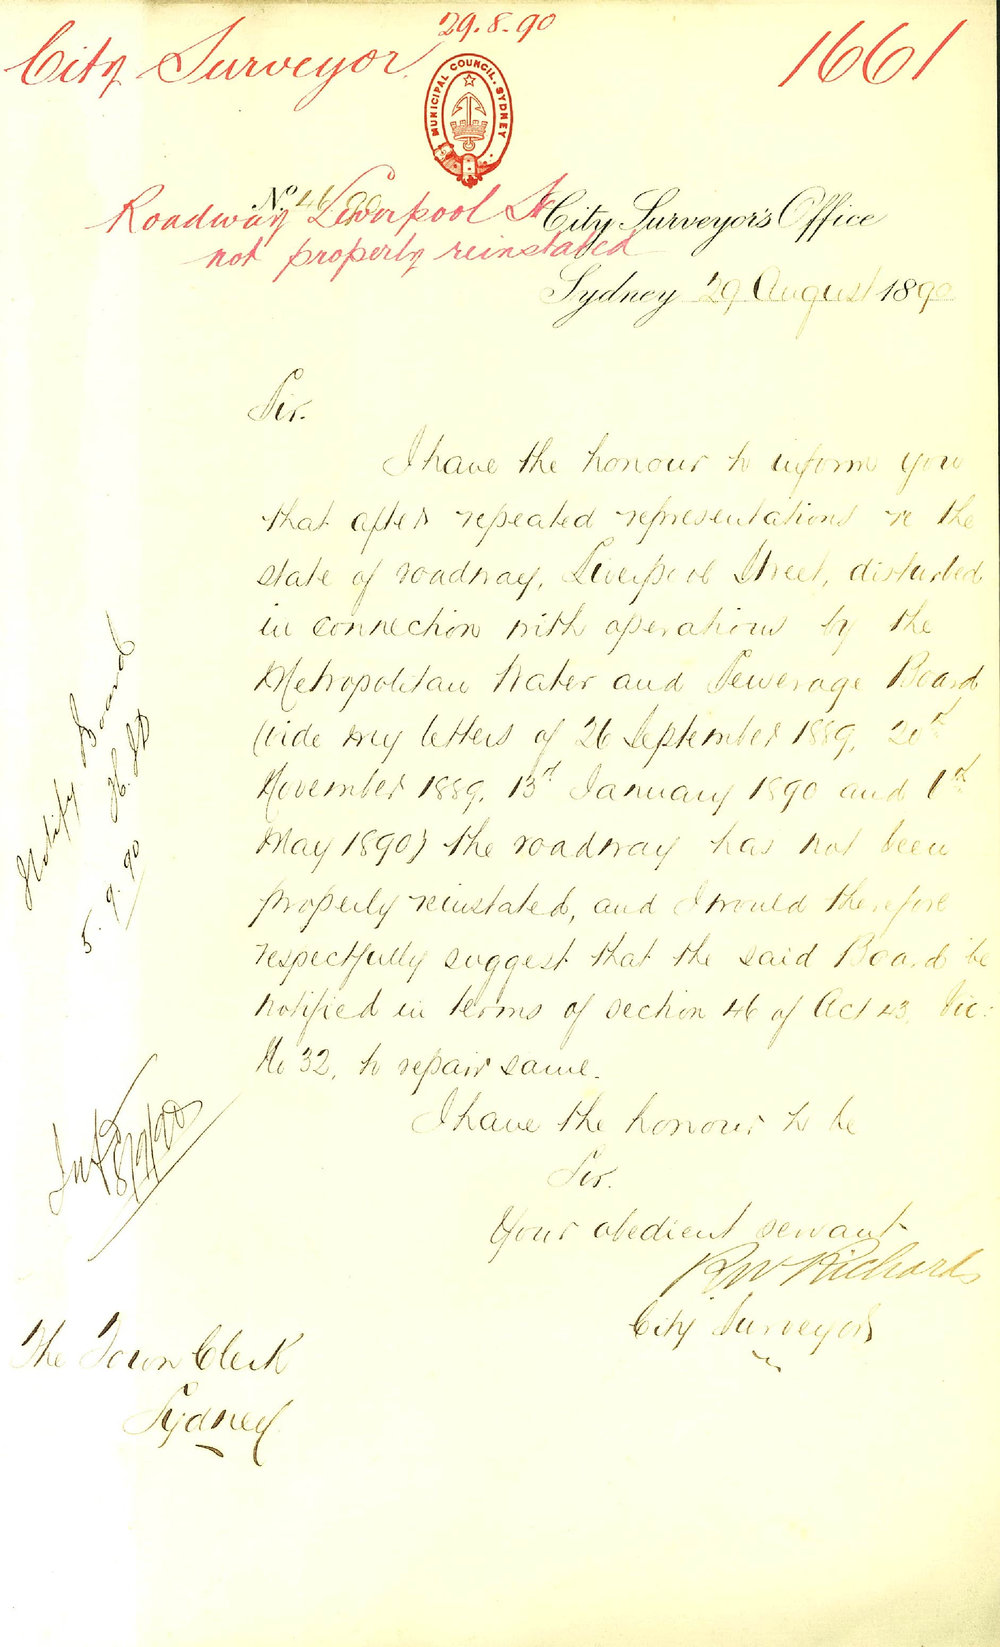 29.8.90
City Surveyor
1661
MUNICIPAL COUNCIL. SYDNEY
No.
Roadway Liverpool St
not properly reinstated
City Surveyor's Office
Sydney 29 August 1890
Sir.
I have the honour to inform you
that after repeated representations re the
state of roadway, Liverpool Street, disturbed
in connection with operations by the
Metropolitan Water and Sewerage Board
(vide my letters of 26 September 1889, 20th
November 1889, 13th January 1890 and 1st
May 1890) the roadway has not been
properly reinstated, and I would therefore
respectfully suggest that the said Board be
notified in terms of section 46 of Act 43. Vic:
No 32, to repair same.
I have the honour to be
Sir.
Your obedient servant
RW Richards
City Surveyor
The Town Clerk
Sydney
Notify Board
5.9.90